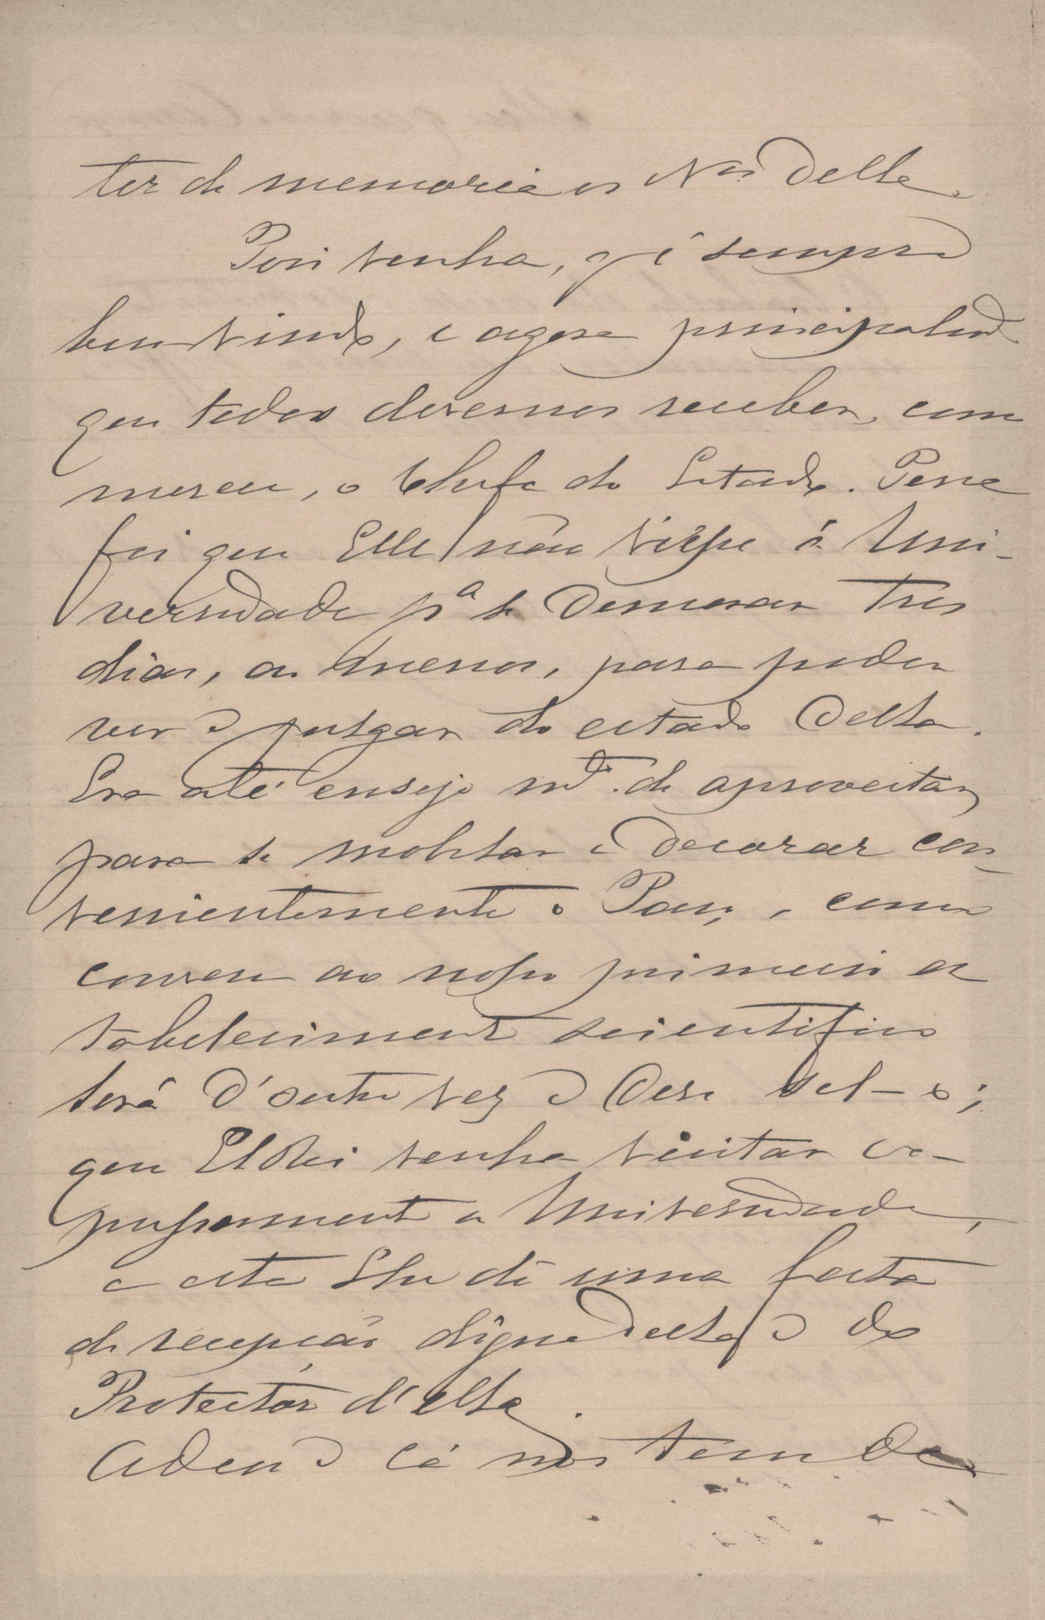 ter de memoria os Nos delle.
Pois venha, q é sempre
bem vindo, e agora principalmte
que todos devemos receber, como
merece, o Chefe do Estado. Pena
foi que Elle não viésse á Uni-
versidade pa se demorar tres
dias, ao menos, para poder
ver e julgar do estado della.
Era até ensejo mto. de aproveitar,
para se mobilar e decorar con-
venientemente o Paço, como
convem ao nosso primeiro es
tabelecimento scientifico
Será d'outra vez e Deve sel-o;
que ElRei venha visitar ex-
pressamente a Universidade,
e esta Lhe dê uma festa
de recepção digna della e do
Protectór d'ella.
Adeus e cá nos tem de